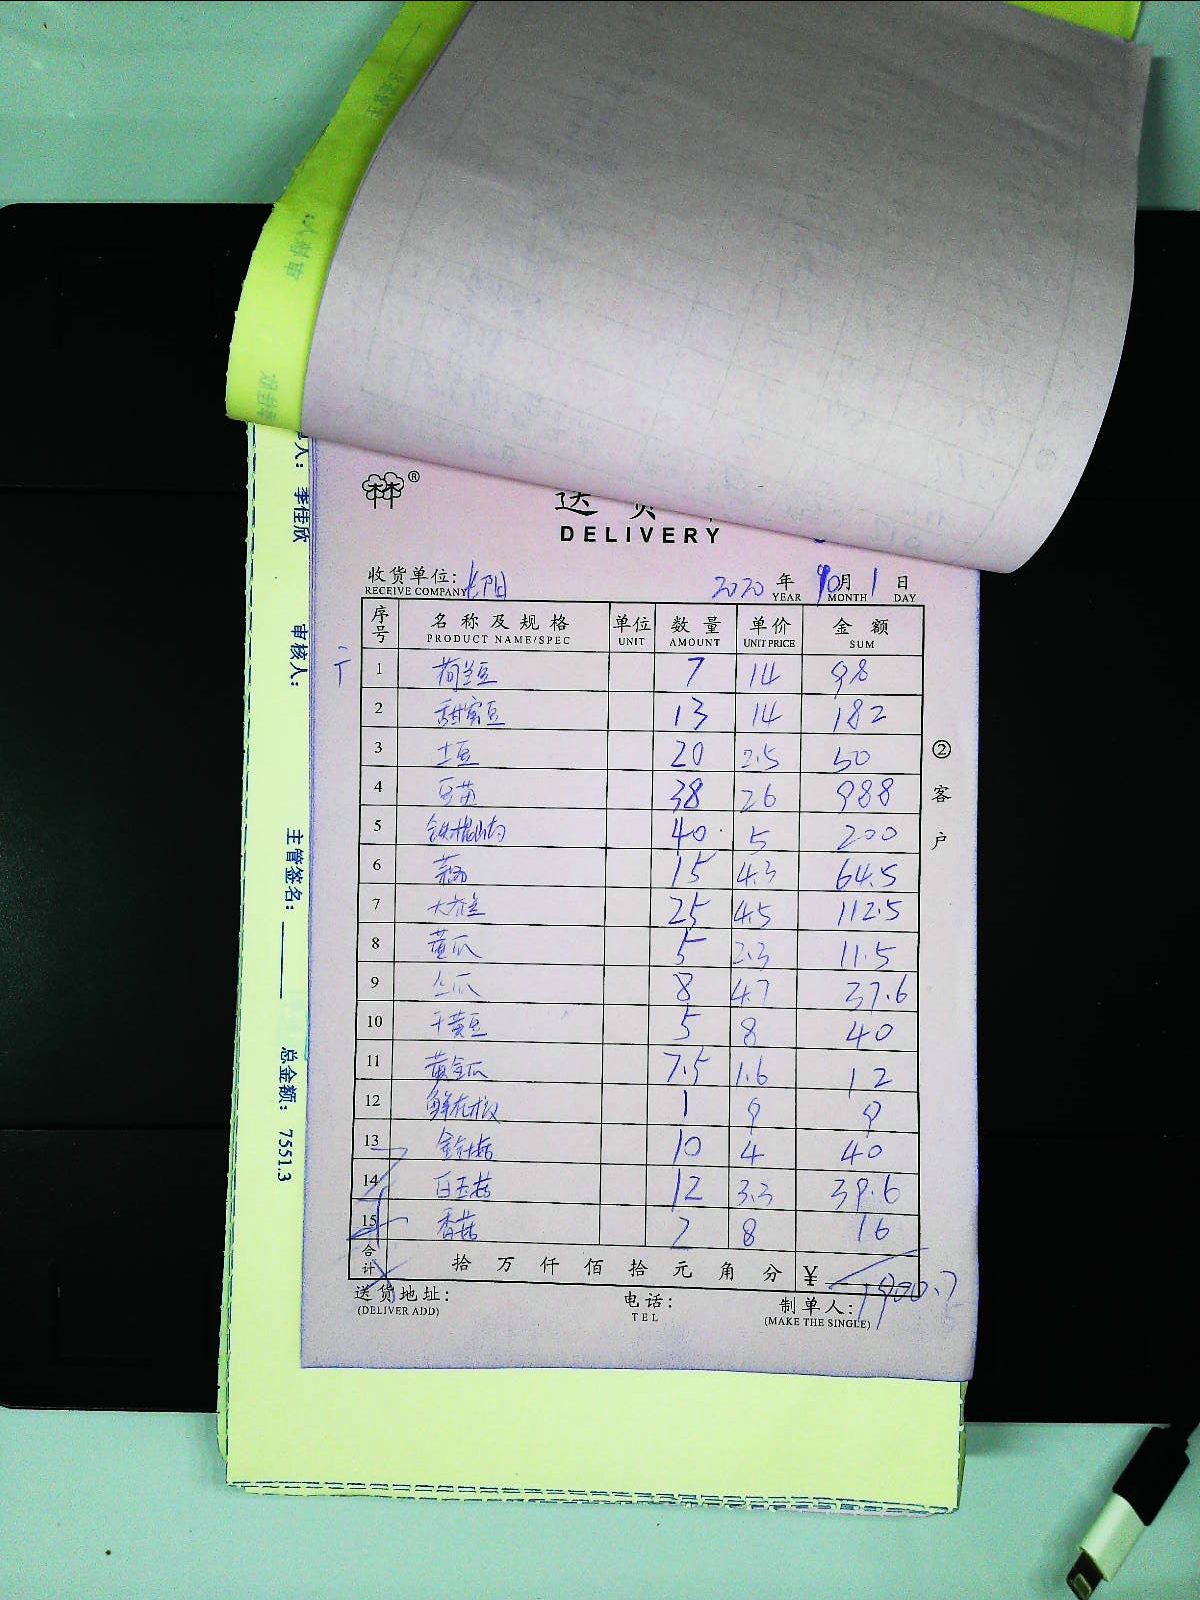 ®
DELIVERY
收货单位: 长阳 2020 年 10 月 1 日
RECEIVE COMPANY YEAR MONTH DAY
序号 名称及规格 单位 数量 单价 金额
PRODUCT NAME/SPEC UNIT AMOUNT UNIT PRICE SUM
1 荷兰豆 7 14 98
2 甜蜜豆 13 14 182
3 土豆 20 2.5 50
4 豆苗 38 26 988
5 铁棍山药 40 5 200
6 15 4.3 64.5
7 25 4.5 112.5
8 黄瓜 5 2.3 11.5
9 瓜 8 4.7 37.6
10 干黄豆 5 8 40
11 黄金瓜 7.5 1.6 12
12 鲜花椒 1 9 9
13 金针菇 10 4 40
14 白玉菇 12 3.3 39.6
15 香菇 2 8 16
合计 拾 万 仟 佰 拾 元 角 分 ¥ 1900.7
送货地址: 电话: 制单人:
(DELIVER ADD) TEL (MAKE THE SINGLE)
② 客户
人: 李佳欣 审核人: 主管签名: 总金额: 7551.3